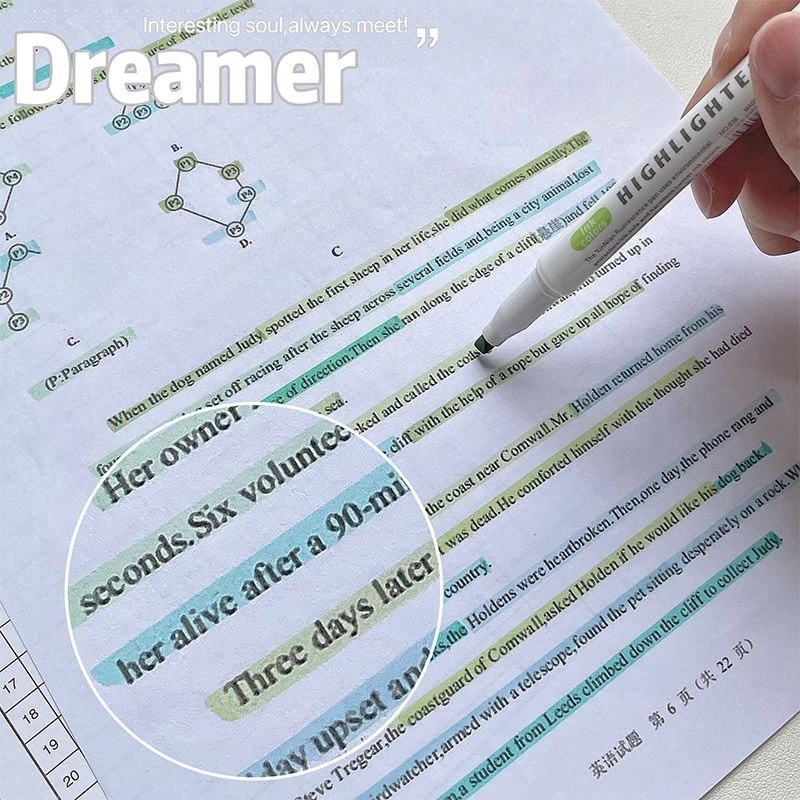 Interesting soul,always meet! ”
Dreamer
B.
P1
P3
P2
P4
P5
D.
C
A.
C.
(P:Paragraph)
HIGHLIGHTE
ink colors
When the dog named Judy spotted the first sheep in her life,she did what comes naturally.The
set off racing after the sheep across several fields and,being a city animal,lost
of direction.Then she ran along the edge of a cliff(悬崖)and fell
sea.
and called the
turned up in
cliff with the help of a rope but gave up all hope of finding
the coast near Cornwall.Mr. Holden returned home from his
was dead.He comforted himself with the thought she had died
country.
the Holdens were heartbroken. Then,one day,the phone rang and
Steve Tregear,the coastguard of Cornwall,asked Holden if he would like his dog back.
birdwatcher,armed with a telescope,found the pet sitting desperately on a rock.
a student from Leeds climbed down the cliff to collect Judy.
Her owner
seconds.Six voluntee
her alive after a 90-mi
Three days later
day upset and
英语试题 第 6 页（共 22 页）
17
18
19
20